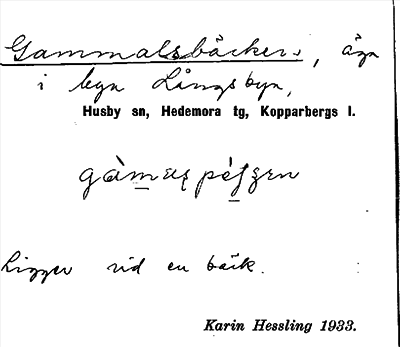 Gammalsbäcken, äga
i byn Långsbyn,
Husby sn, Hedemora tg, Kopparbergs l.
Ligger vid en bäck.
Karin Hessling 1933.